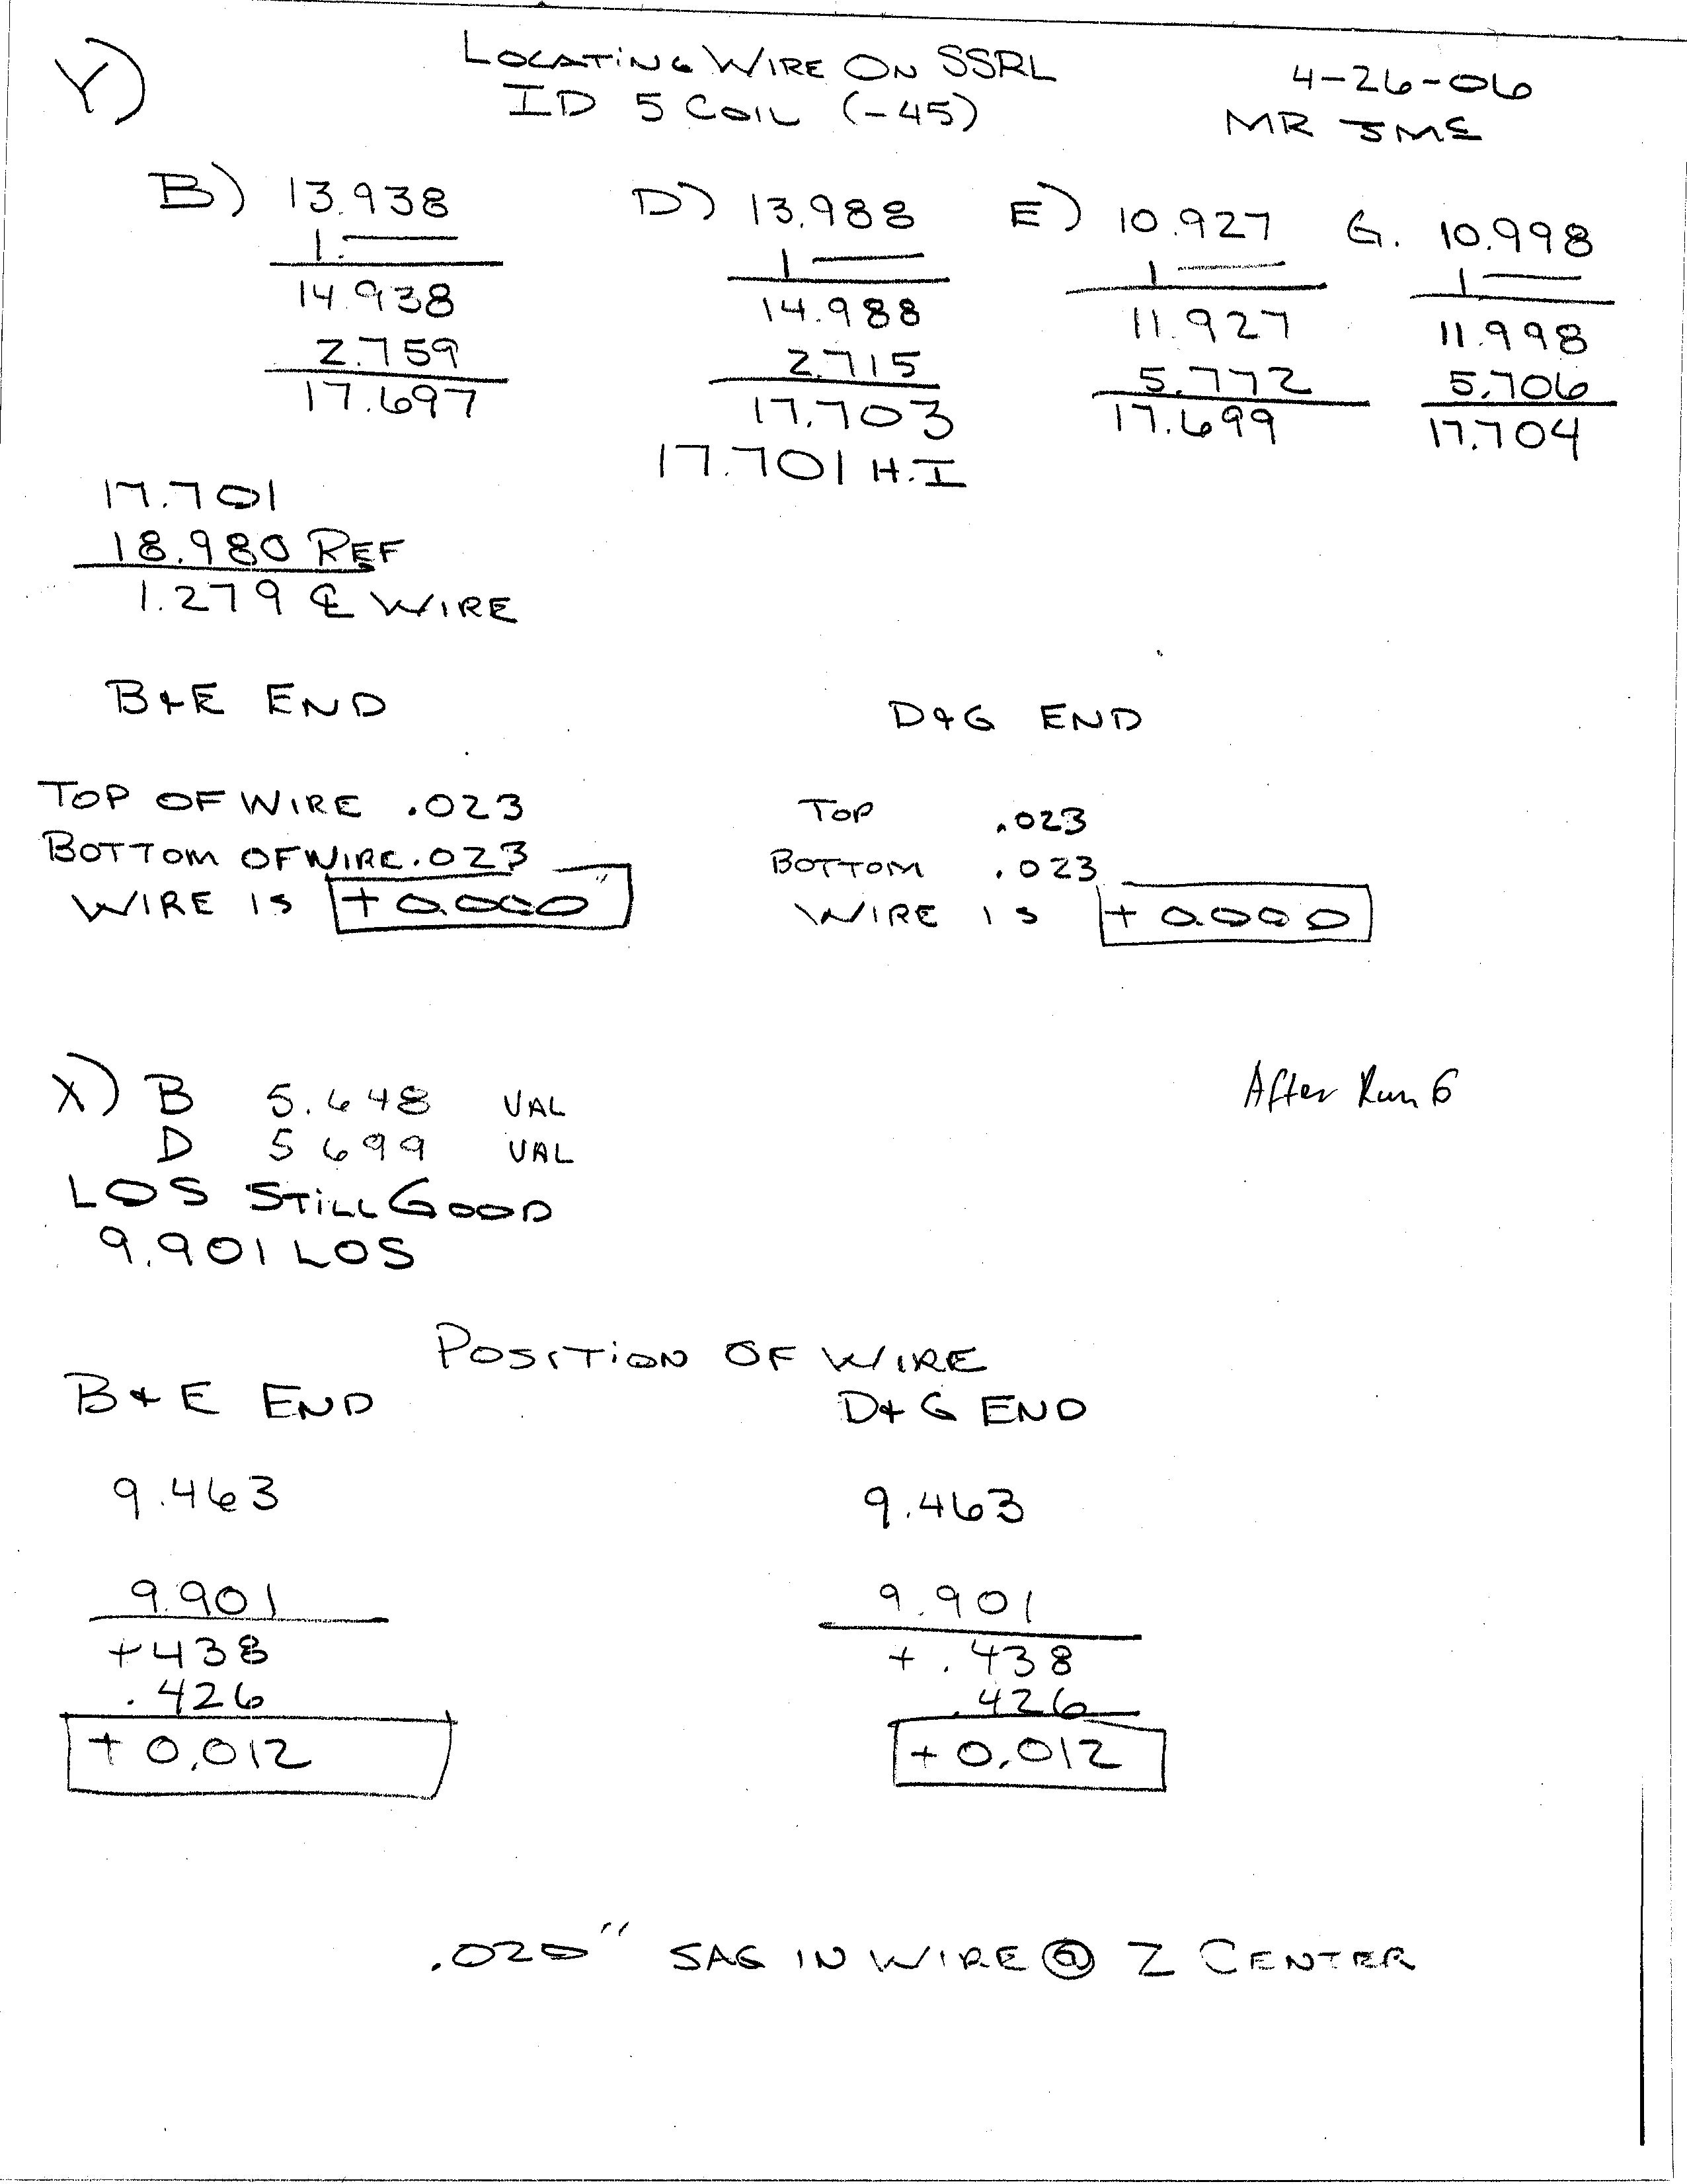 Y) LOCATING WIRE ON SSRL 4-26-06
ID 5 COIL (-45) MR JME
B) 13.938 D) 13.988 E) 10.927 G. 10.998
1. — 1 — 1 — 1 —
14.938 14.988 11.927 11.998
2.759 2.715 5.772 5.706
17.697 17.703 17.699 17.704
17.701 H.I
17.701
18.980 REF
1.279 ℄ WIRE
B+E END D+G END
TOP OF WIRE .023 TOP .023
BOTTOM OF WIRE .023 BOTTOM .023
WIRE IS +0.000" WIRE IS +0.000
X) B 5.648 VAL After Run 6
D 5 699 VAL
LOS STILL GOOD
9.901 LOS
POSITION OF WIRE
B+E END D+G END
9.463 9.463
9.901 9.901
+438 +.438
.426 .426
+0.012 +0.012
.020" SAG IN WIRE @ Z CENTER